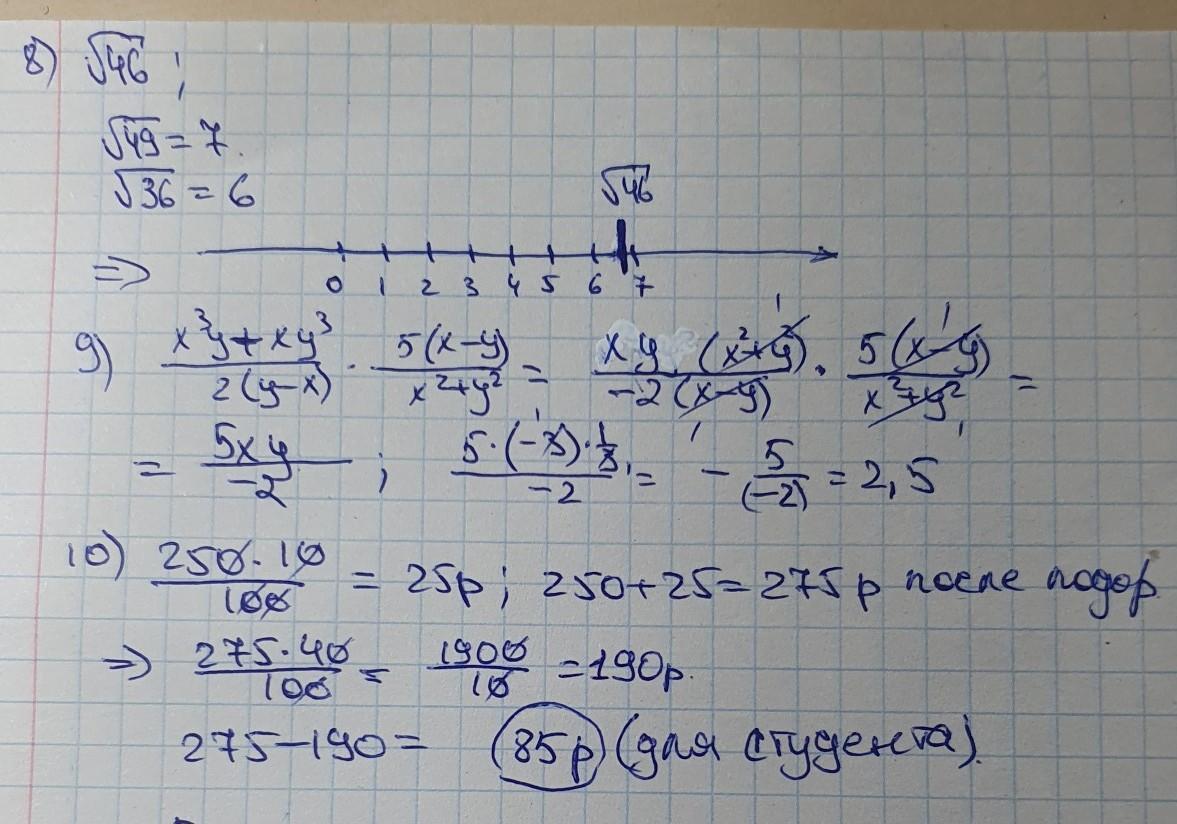 8) √46 ;
√49 = 7.
√36 = 6
√46
=> 0 1 2 3 4 5 6 7
9) (x³y + xy³)/(2(y-x)) · (5(x-y))/(x²+y²) = (xy (x²+y²))/(-2(x-y)) · (5(x-y))/(x²+y²) =
= (5xy)/(-2) ; (5·(-3)·1/3)/(-2) = - 5/(-2) = 2,5
10) (250·10)/100 = 25р ; 250+25=275р после подор.
=> (275·40)/100 = 1900/10 = 190р.
275-190 = 85р (для студента).